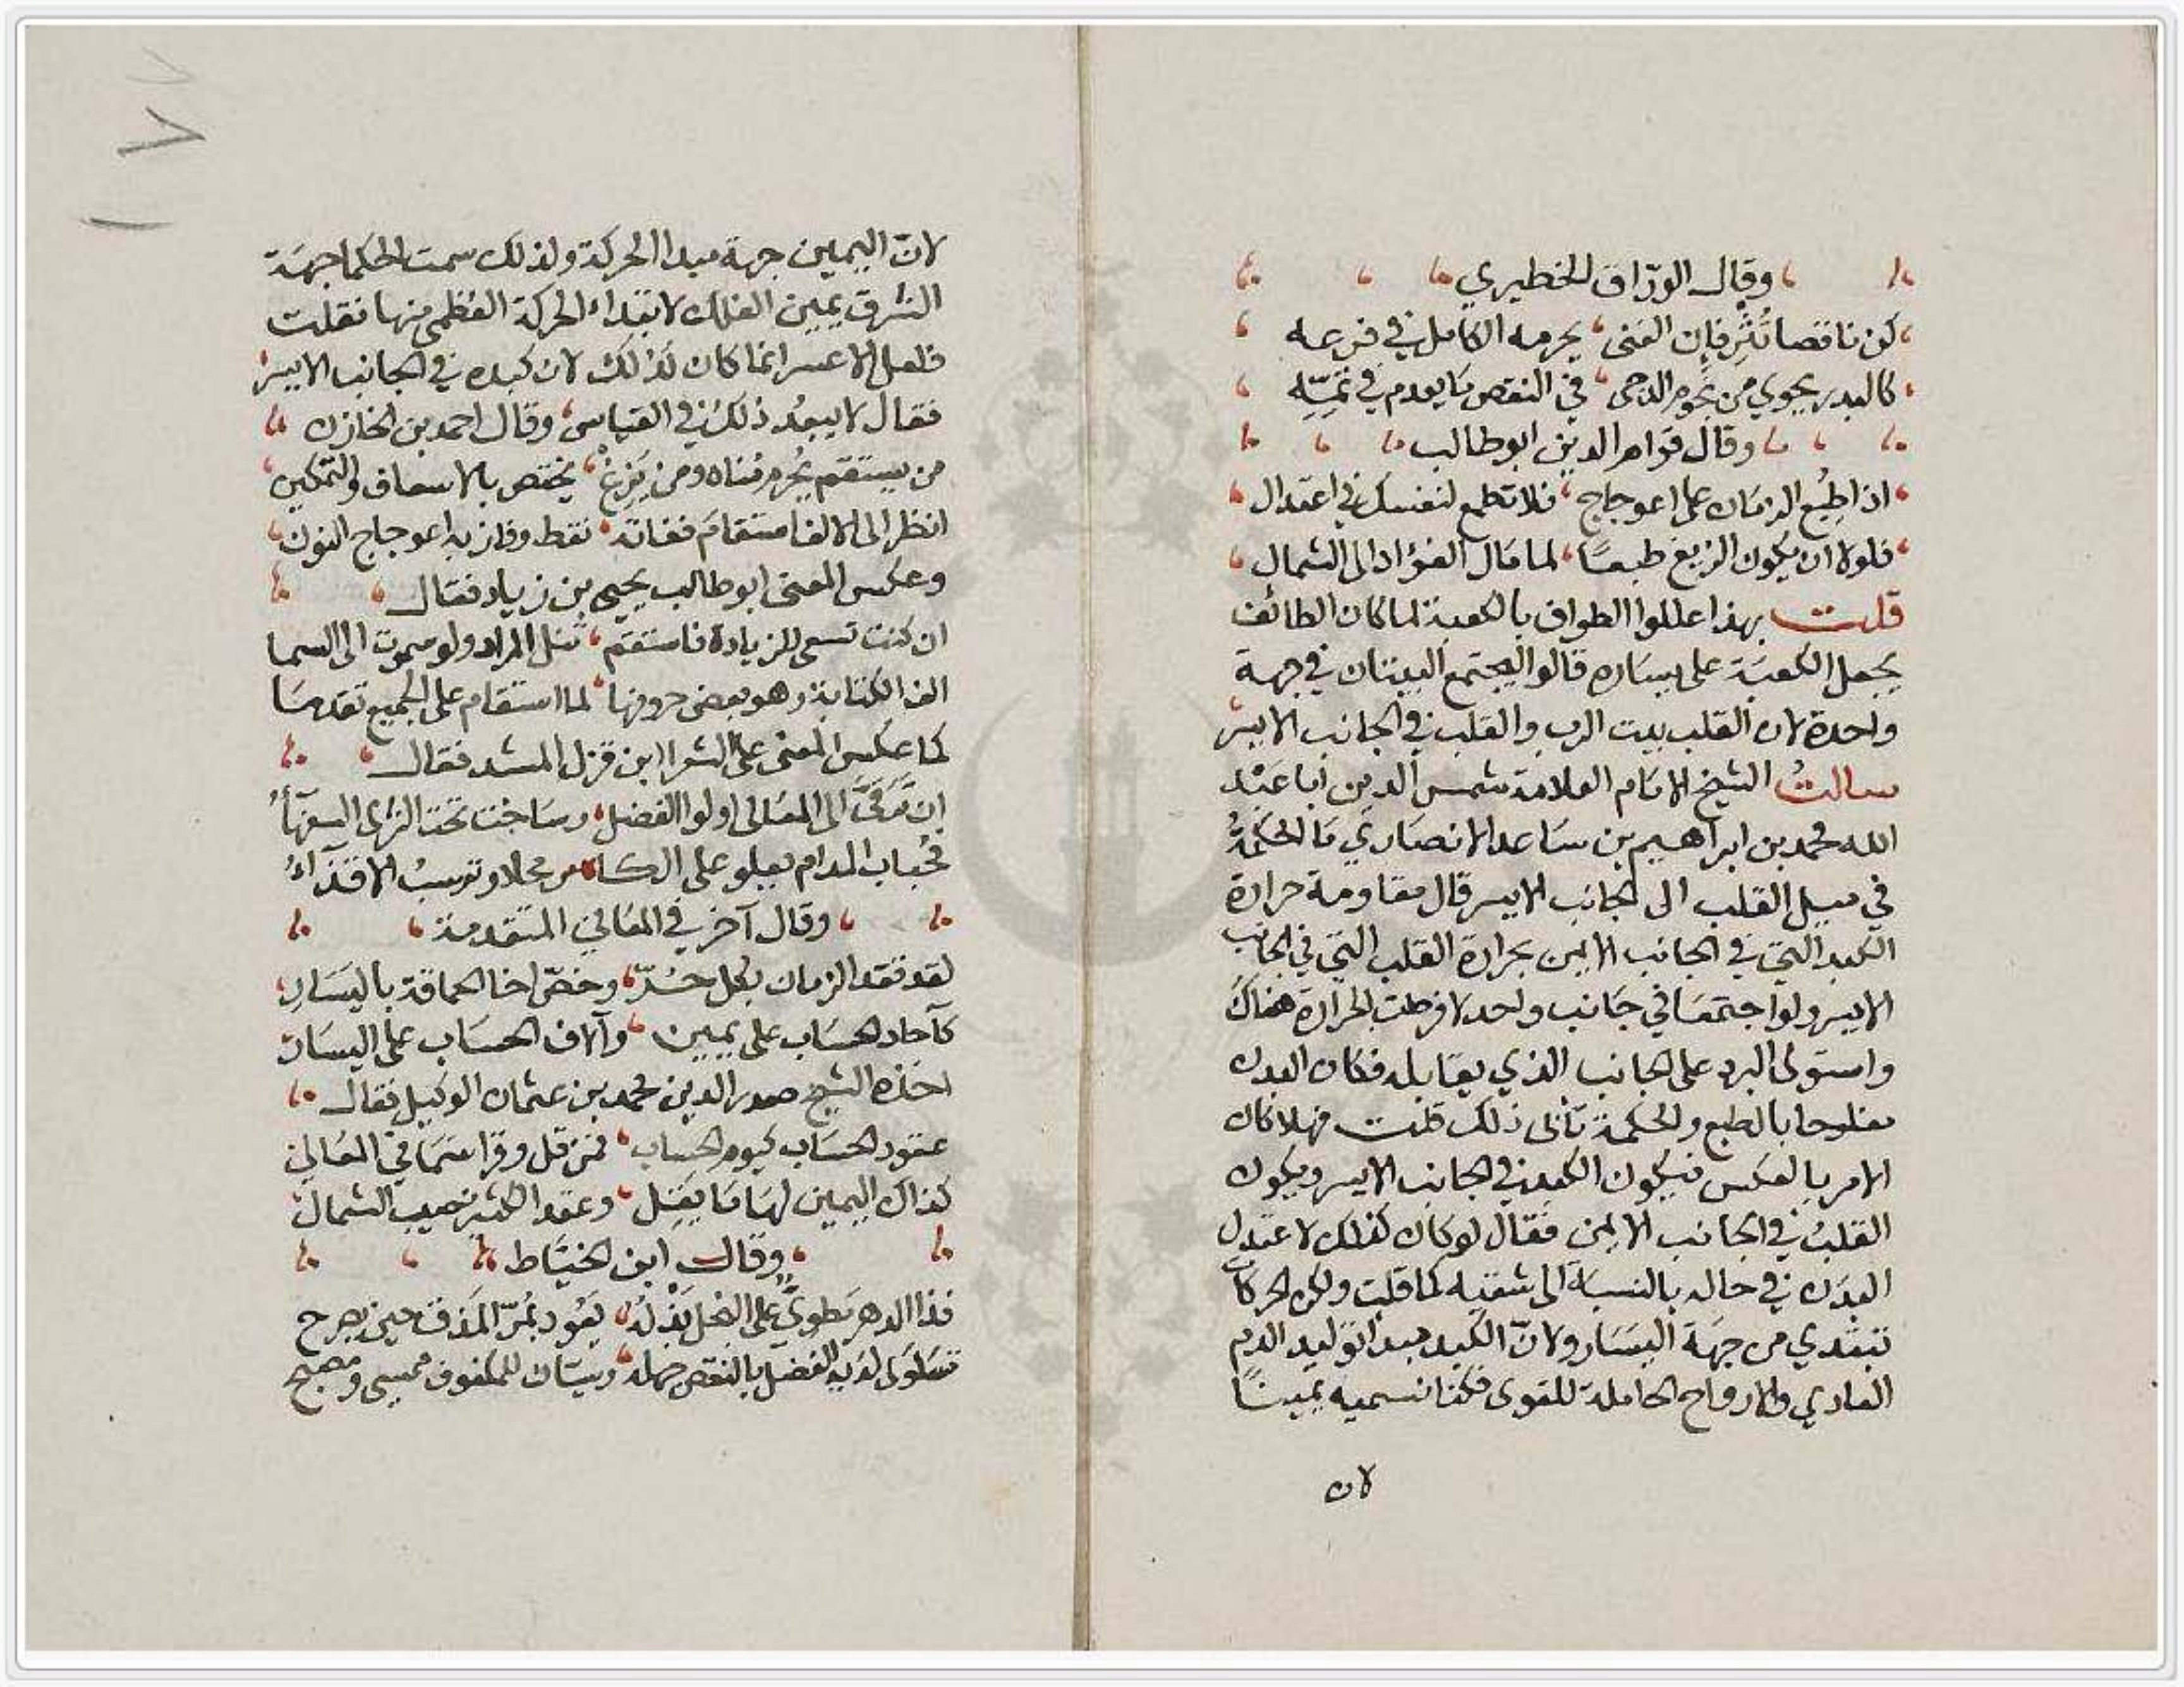 وقال الورّاق الخطيري
كن ناقصا تُثرِ فإن الغنى يحرمه الكامل في فرعه
كالبدر يحوي من نجوم الدجى في النقص ما يعدم في تمّه
وقال قوام الدين ابو طالب
اذا طُبِع الزمان على اعوجاج فلا تطمع لنفسك في اعتدال
فلولا ان يكون الزيغ طبعًا لما مال الفؤاد الى الشمال
قلت بهذا عللوا الطواف بالكعبة لما كان الطائف
يجعل الكعبة على يساره قالوا ليجتمع البيتان في جهة
واحدة لان القلب بيت الرب والقلب في الجانب الايسر
سالتُ الشيخ الامام العلامة شمس الدين ابا عبد
الله محمد بن ابراهيم بن ساعد الانصاري ما الحكمةُ
في ميل القلب الى الجانب الايسر قال مقاومة حرارة
الكبد التي في الجانب الايمن بحرارة القلب التي في الجانب
الايسر ولو اجتمعا في جانب واحد لافرطت الحرارة هناك
واستولى البرد على الجانب الذي يقابله فكان البدن
مفلوجا بالطبع والحكمة تأبى ذلك قلت فهلا كان
الامر بالعكس فيكون الكبد في الجانب الايسر ويكون
القلبُ في الجانب الايمن فقال لو كان كذلك لاعتدل
البدن في حاله بالنسبة الى شقيه كما قلت ولكن الحركات
تبتدي من جهة اليسار ولانّ الكبد مبدا توليد الدم
الغادي والارواح الحاملة للقوى فكنا نسميه يمينًا
لان
لانّ اليمين جهة مبدا الحركة ولذلك سمت الحكما جهة
الشرق يمين الفلك لابتداء الحركة العظمى منها فقلت
فلعل الاعسر انما كان كذلك لان كبده في الجانب الايسر
فقال لا يبعد ذلك في القياس وقال احمد بن الخازن
من يستقم يُحرم مُناه ومن يَزغْ يختص بالاسعاف والتمكين
انظر الى الالف استقام ففاته نقط وفاز به اعوجاج النون
وعكس المعنى ابو طالب يحيى بن زياد فقال
ان كنت تسعى للزيادة فاستقم تنل المراد ولو سموت الى السما
الف الكتابة وهو بعض حروفها لما استقام على الجميع تقدما
كما عكس المعنى على الشعرا ابن قزل المشد فقال
إن ترقّى الى المعالي اولوا الفضل وساخت تحت الثرى السفهاءُ
فحُباب المدام يعلو على الكاس محلا وترسبُ الاقذاءُ
وقال آخر في المعاني المتقدمة
لقد نقد الزمان بكل حُرّ وخصّ اخا الحماقة باليسار
كآحاد الحساب على يمين وآلاف الحساب على اليسار
اخذه الشيخ صدر الدين محمد بن عثمان الوكيل فقال
عقود الحساب كيوم الحساب فمن قل وقرا سما في المعالي
كذاك اليمين لها ما يقل وعقد الكثير نصيب الشمال
وقال ابن الخياط
فذا الدهر مطويٌّ على البخل بَذْلُه يعُود بمُرّ المذق حين يصرح
تساوى لديه الفضل بالنقص جهله وسيّان للمكفوف ممسى ومصبح